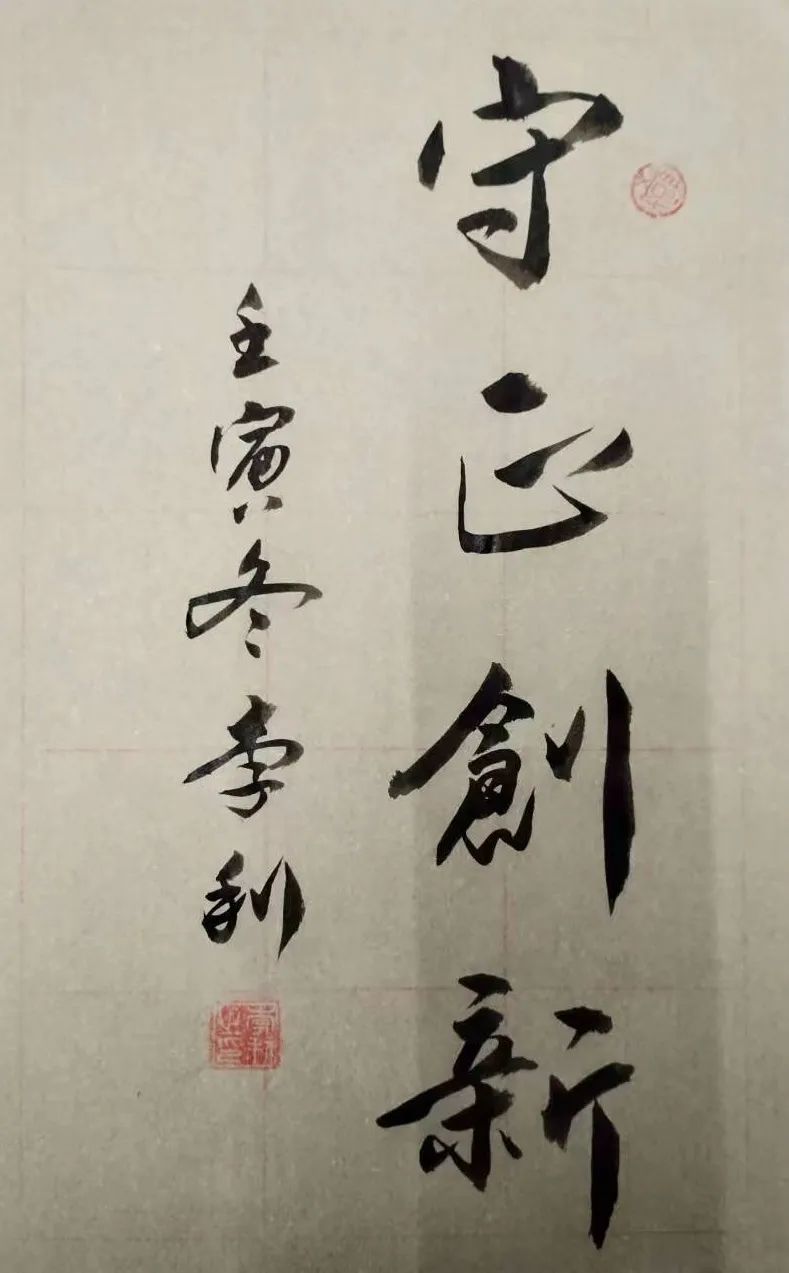 守正創新
壬寅冬李利